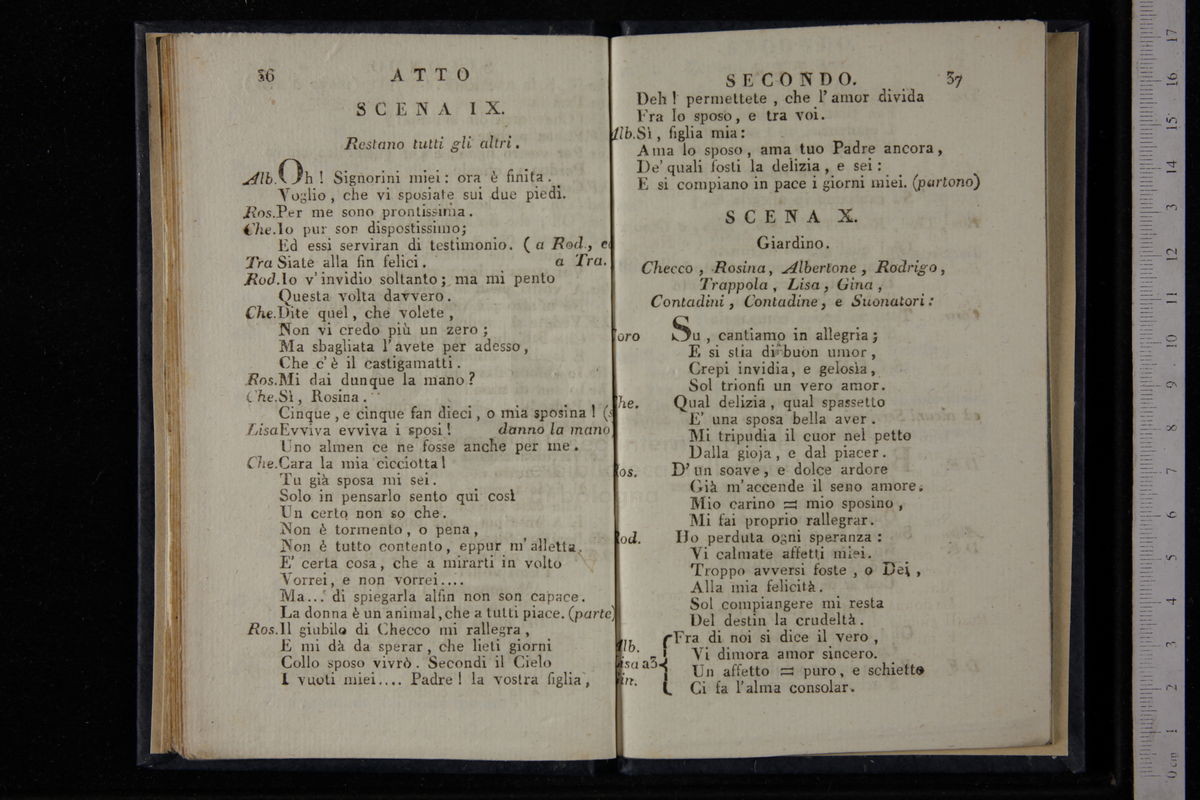 36 ATTO
SCENA IX.
Restano tutti gli altri.
Alb. Oh! Signorini miei: ora è finita.
Voglio, che vi sposiate sui due piedi.
Ros. Per me sono prontissima.
Che. Io pur son dispostissimo;
Ed essi serviran di testimonio. (a Rod., e
Tra Siate alla fin felici. a Tra.
Rod. Io v'invidio soltanto; ma mi pento
Questa volta davvero.
Che. Dite quel, che volete,
Non vi credo più un zero;
Ma sbagliata l'avete per adesso,
Che c'è il castigamatti.
Ros. Mi dai dunque la mano?
Che. Sì, Rosina.
Cinque, e cinque fan dieci, o mia sposina! (s
Lisa Evviva evviva i sposi! danno la mano
Uno almen ce ne fosse anche per me.
Che. Cara la mia cicciotta!
Tu già sposa mi sei.
Solo in pensarlo sento qui così
Un certo non so che.
Non è tormento, o pena,
Non è tutto contento, eppur m'alletta.
E' certa cosa, che a mirarti in volto
Vorrei, e non vorrei....
Ma... di spiegarla alfin non son capace.
La donna è un animal, che a tutti piace. (parte)
Ros. Il giubilo di Checco mi rallegra,
E mi dà da sperar, che lieti giorni
Collo sposo vivrò. Secondi il Cielo
I vuoti miei.... Padre! la vostra figlia,
SECONDO. 37
Deh! permettete, che l'amor divida
Fra lo sposo, e tra voi.
Alb. Sì, figlia mia:
Ama lo sposo, ama tuo Padre ancora,
De' quali fosti la delizia, e sei:
E si compiano in pace i giorni miei. (partono)
SCENA X.
Giardino.
Checco, Rosina, Albertone, Rodrigo,
Trappola, Lisa, Gina,
Contadini, Contadine, e Suonatori:
oro Su, cantiamo in allegria;
E si stia di buon umor,
Crepi invidia, e gelosìa,
Sol trionfi un vero amor.
he. Qual delizia, qual spassetto
E' una sposa bella aver.
Mi tripudia il cuor nel petto
Dalla gioja, e dal piacer.
os. D'un soave, e dolce ardore
Già m'accende il seno amore.
Mio carino = mio sposino,
Mi fai proprio rallegrar.
od. Ho perduta ogni speranza:
Vi calmate affetti miei.
Troppo avversi foste, o Dei,
Alla mia felicità.
Sol compiangere mi resta
Del destin la crudeltà.
Alb. Fra di noi si dice il vero,
Vi dimora amor sincero.
isa a3 Un affetto = puro, e schietto
in. Ci fa l'alma consolar.
0 cm 1 2 3 4 5 6 7 8 9 10 11 12 13 14 15 16 17